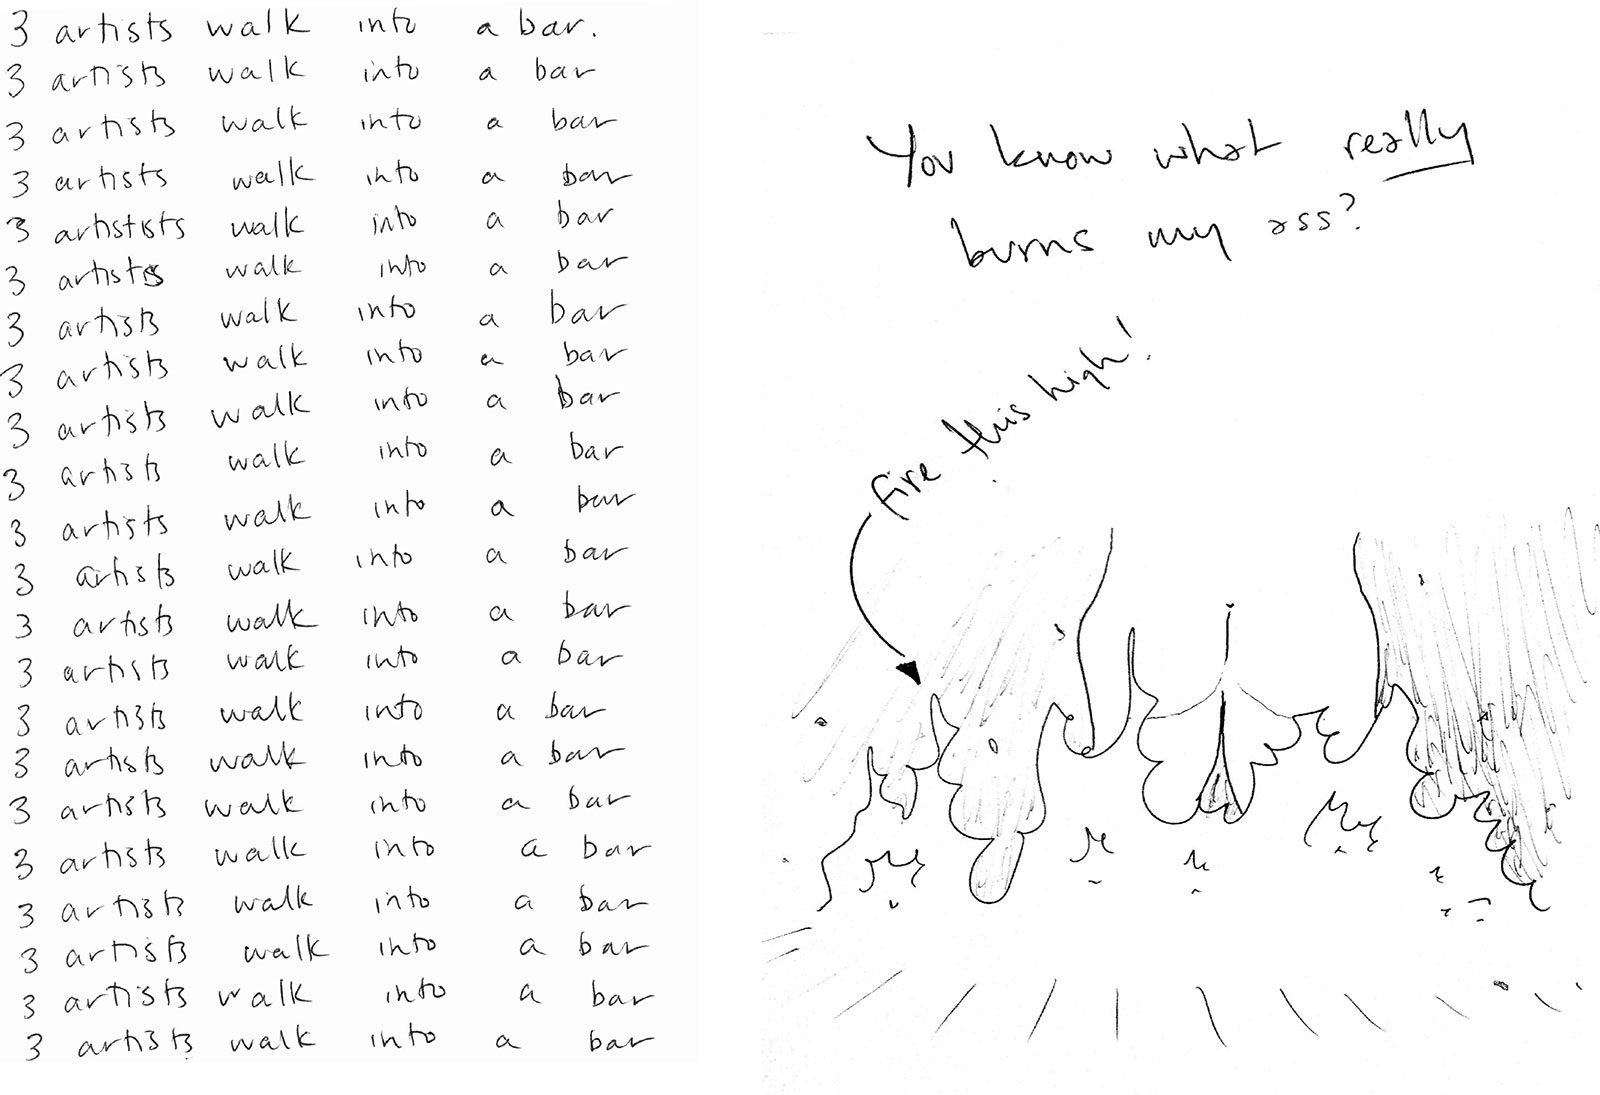 3 artists walk into a bar.
3 artists walk into a bar
3 artists walk into a bar
3 artists walk into a bar
3 artistists walk into a bar
3 artists walk into a bar
3 artists walk into a bar
3 artists walk into a bar
3 artists walk into a bar
3 artists walk into a bar
3 artists walk into a bar
3 artists walk into a bar
3 artists walk into a bar
3 artists walk into a bar
3 artists walk into a bar
3 artists walk into a bar
3 artists walk into a bar
3 artists walk into a bar
3 artists walk into a bar
3 artists walk into a bar
3 artists walk into a bar
3 artists walk into a bar
You know what really
burns my ass?
fire this high!